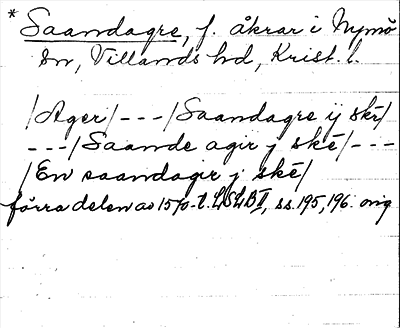 * Saandagre, f. åkrar i Nymö
sn, Villands hd, Krist. l.
/Ager/ - - - /Saandagre ij skē/
- - - /Saande agir j skē/ - - -
/En saandagir j skē/
förra delen av 1570-t. LSLB II, ss. 195, 196. orig